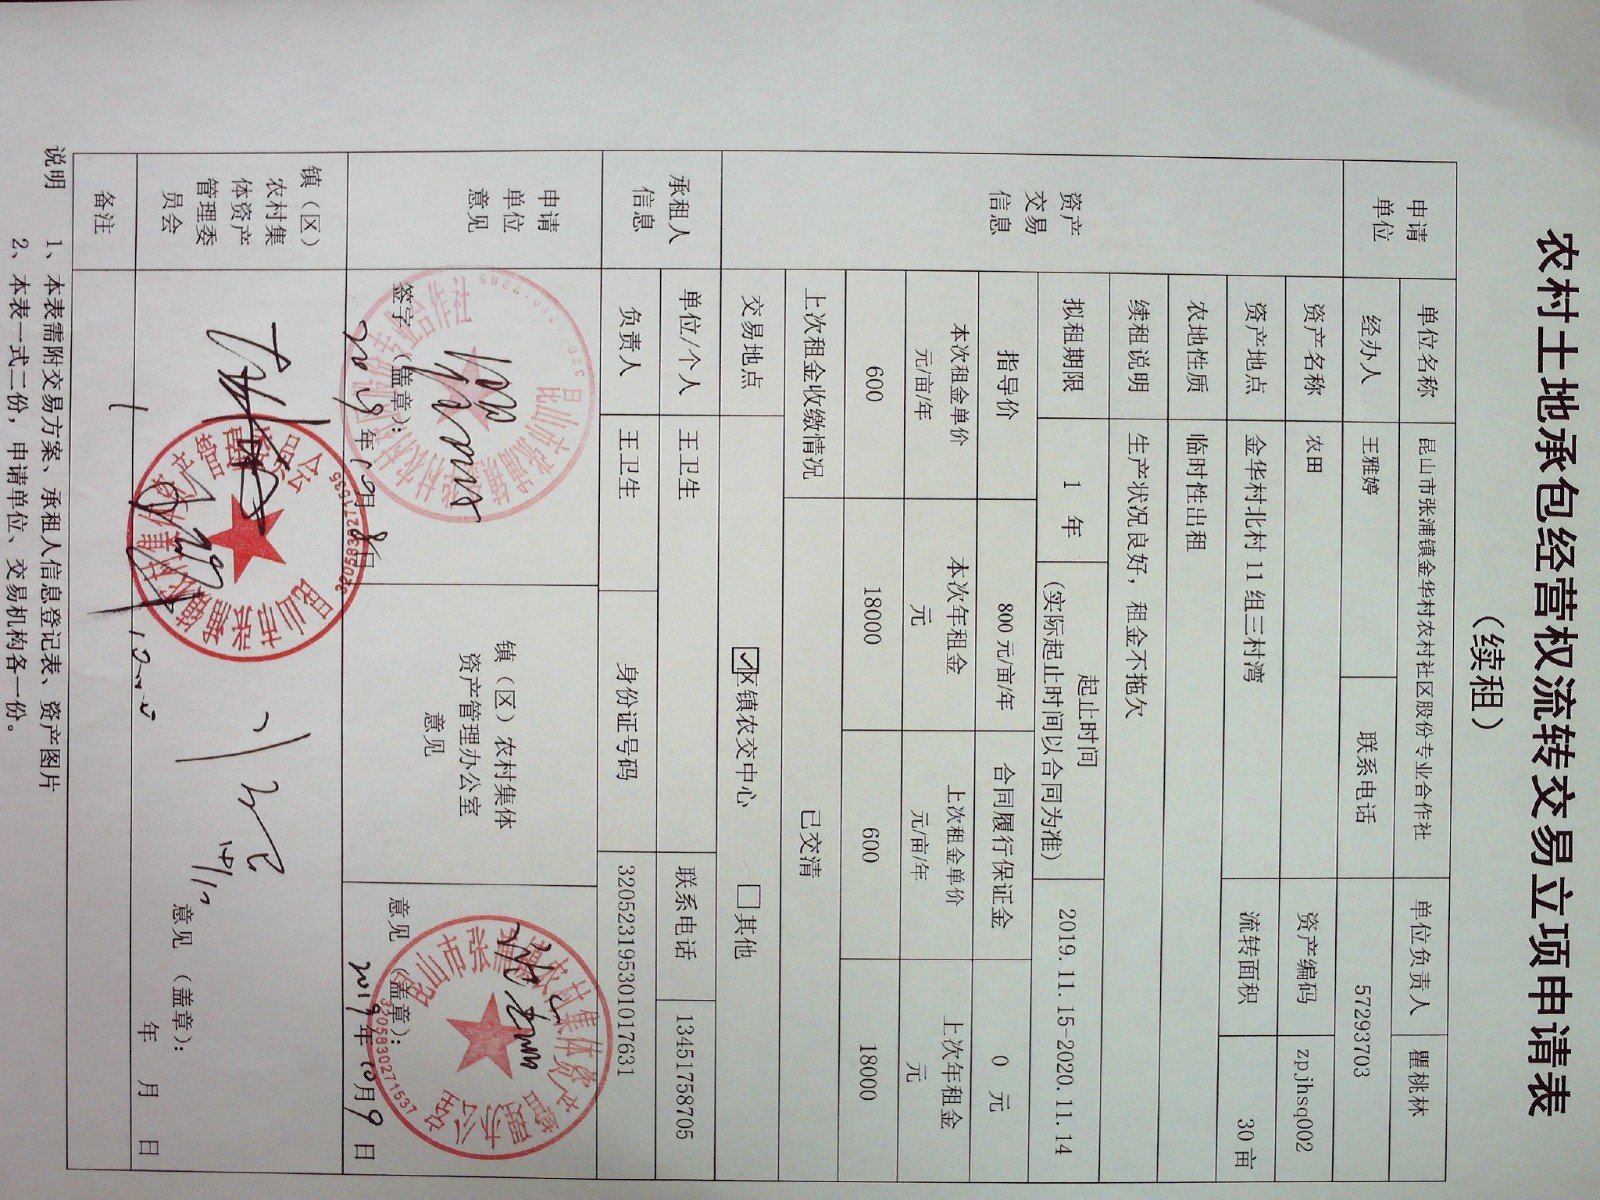 农村土地承包经营权流转交易立项申请表
（续租）
申请单位 单位名称 昆山市张浦镇金华村农村社区股份专业合作社 单位负责人 瞿桃林
经办人 王雅婷 联系电话 57293703
资产交易信息 资产名称 农田 资产编码 zpjhsq002
资产地点 金华村北村 11 组三村湾 流转面积 30 亩
农地性质 临时性出租
续租说明 生产状况良好，租金不拖欠
拟租期限 1 年 起止时间（实际起止时间以合同为准） 2019.11.15-2020.11.14
指导价 800 元/亩/年 合同履行保证金 0 元
本次租金单价 元/亩/年 本次年租金 元 上次租金单价 元/亩/年 上次年租金 元
600 18000 600 18000
上次租金收缴情况 已交清
交易地点 ☑区镇农交中心 □其他
承租人信息 单位/个人 王卫生 联系电话 13451758705
负责人 王卫生 身份证号码 320523195301017631
申请单位意见 签字（盖章）： 2019年10月8日
镇（区）农村集体资产管理办公室意见 意见（盖章）： 2019年10月9日
镇（区）农村集体资产管理委员会 意见（盖章）： 年 月 日
备注
说明 1、本表需附交易方案、承租人信息登记表、资产图片
2、本表一式二份，申请单位、交易机构各一份。